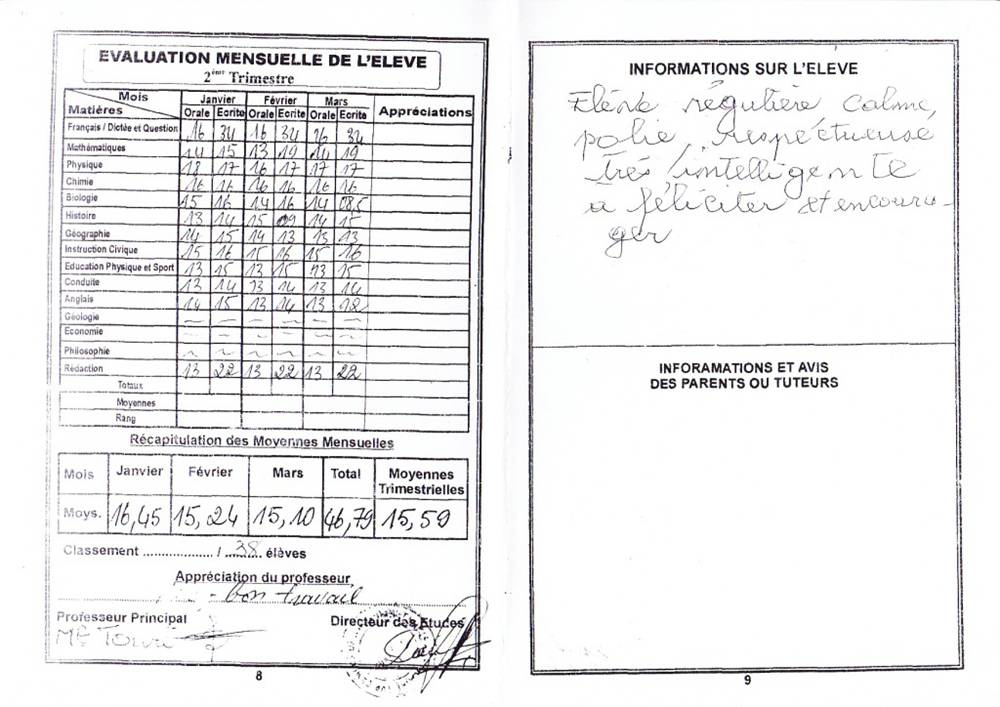 EVALUATION MENSUELLE DE L'ELEVE
2ème Trimestre
Mois Janvier Février Mars Appréciations
Matières Orale Ecrite Orale Ecrite Orale Ecrite
Français / Dictée et Question 16 34 16 34 16 34
Mathématiques 14 15 13 19 14 19
Physique 18 17 16 17 17 17
Chimie 16 16 16 16 16 16
Biologie 15 16 14 16 14 08,5
Histoire 13 14 15 09 14 15
Géographie 14 15 14 13 13 13
Instruction Civique 15 16 15 16 15 16
Education Physique et Sport 13 15 13 15 13 15
Conduite 13 14 13 14 13 14
Anglais 14 15 13 14 13 12
Géologie
Economie
Philosophie
Rédaction 13 22 13 22 13 22
Totaux
Moyennes
Rang
Récapitulation des Moyennes Mensuelles
Mois Janvier Février Mars Total Moyennes Trimestrielles
Moys. 16,45 15,24 15,10 46,79 15,59
Classement .................... / 38 élèves
Appréciation du professeur
- bon travail
Professeur Principal Directeur des Etudes
Mr Touré
8
INFORMATIONS SUR L'ELEVE
Elève régulière calme,
polie, respectueuse
très intelligente
à féliciter et encoura-
ger
INFORAMATIONS ET AVIS
DES PARENTS OU TUTEURS
9